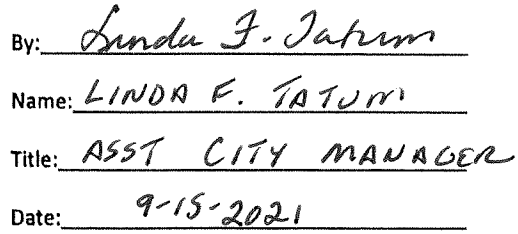 By: Linda F. Tatum
Name: LINDA F. TATUM
Title: ASST CITY MANAGER
Date: 9-15-2021